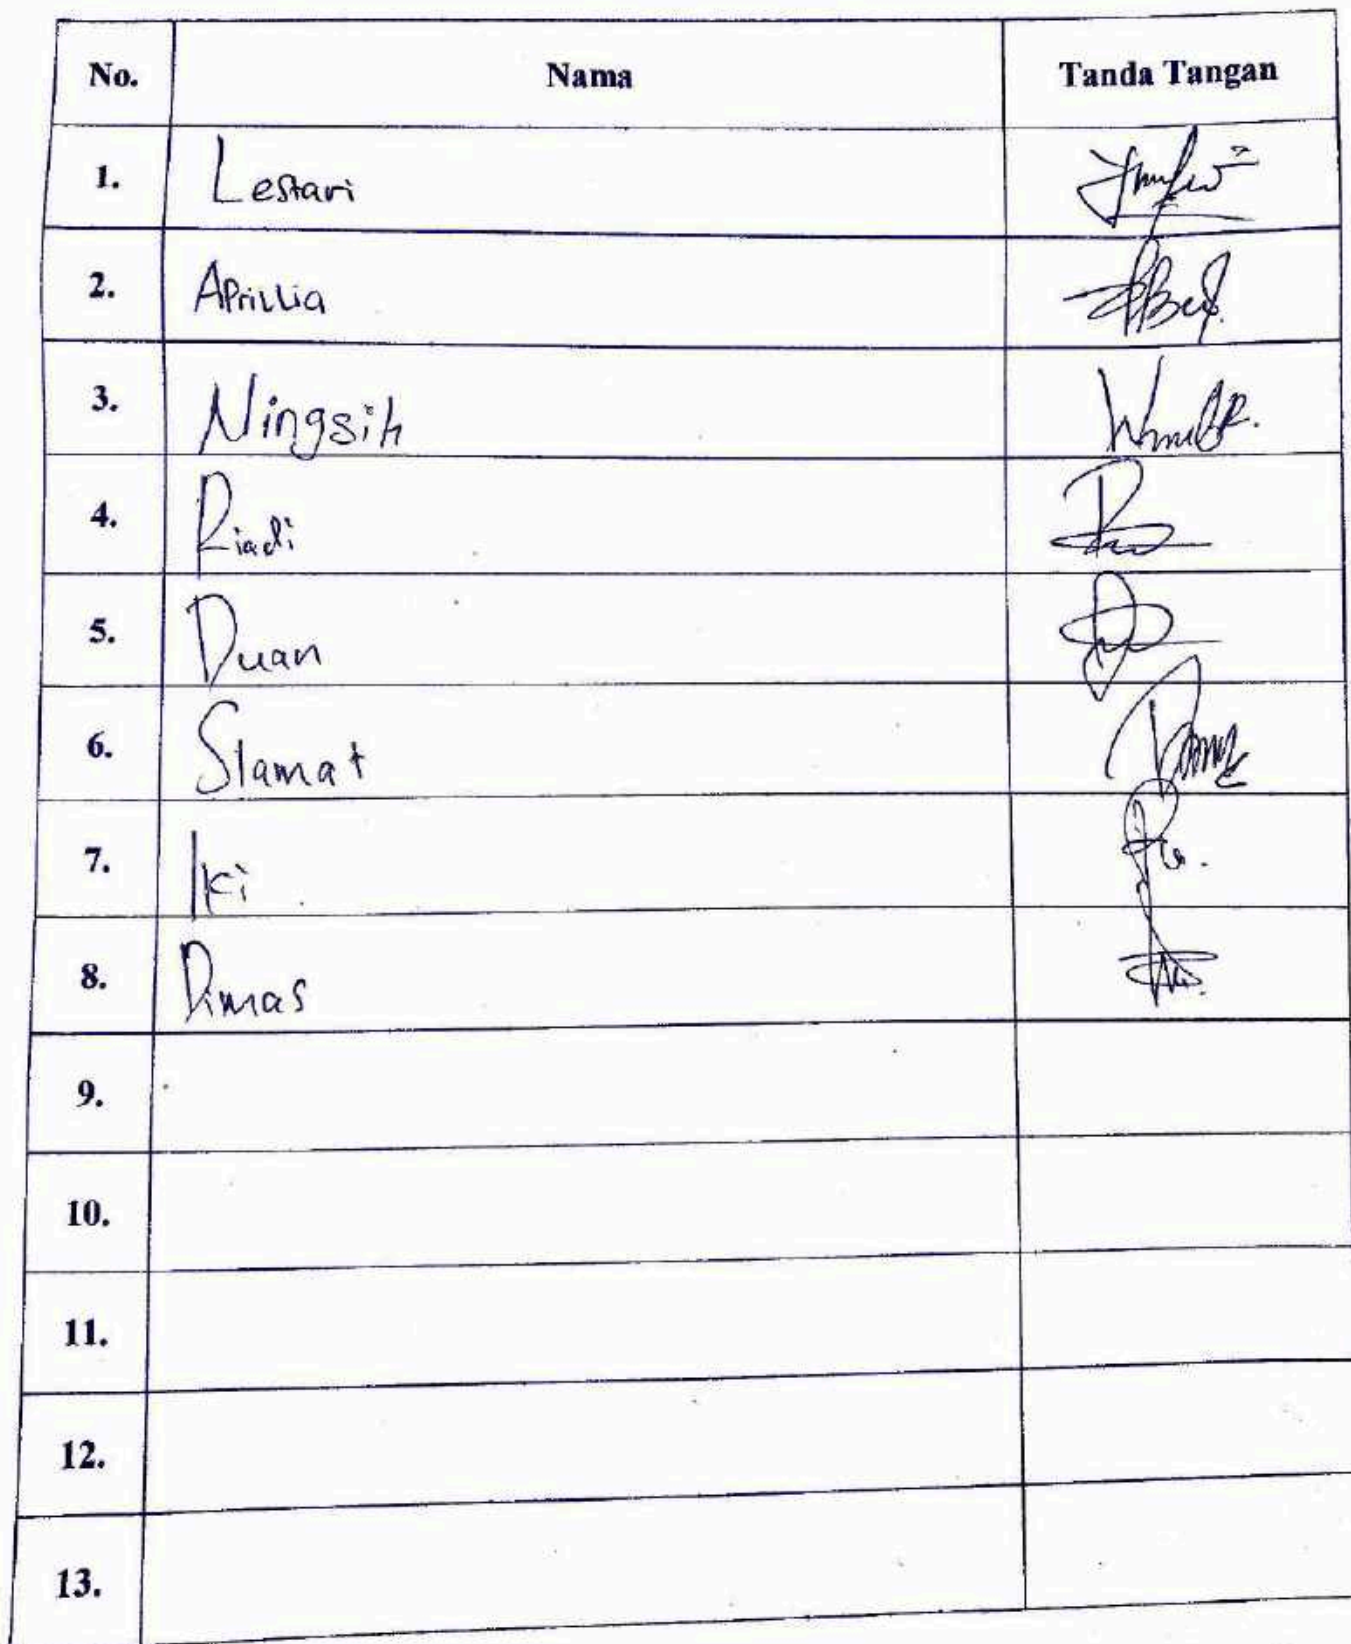 No. Nama Tanda Tangan
1. Lestari
2. Aprillia
3. Ningsih
4. Riadi
5. Duan
6. Slamat
7. Iki
8. Dimas
9.
10.
11.
12.
13.